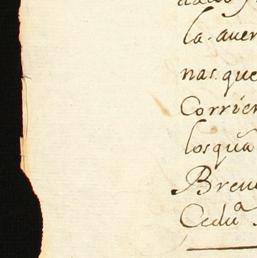 la auer
nas. que
Corrien
losquã
Breue
Ceduª